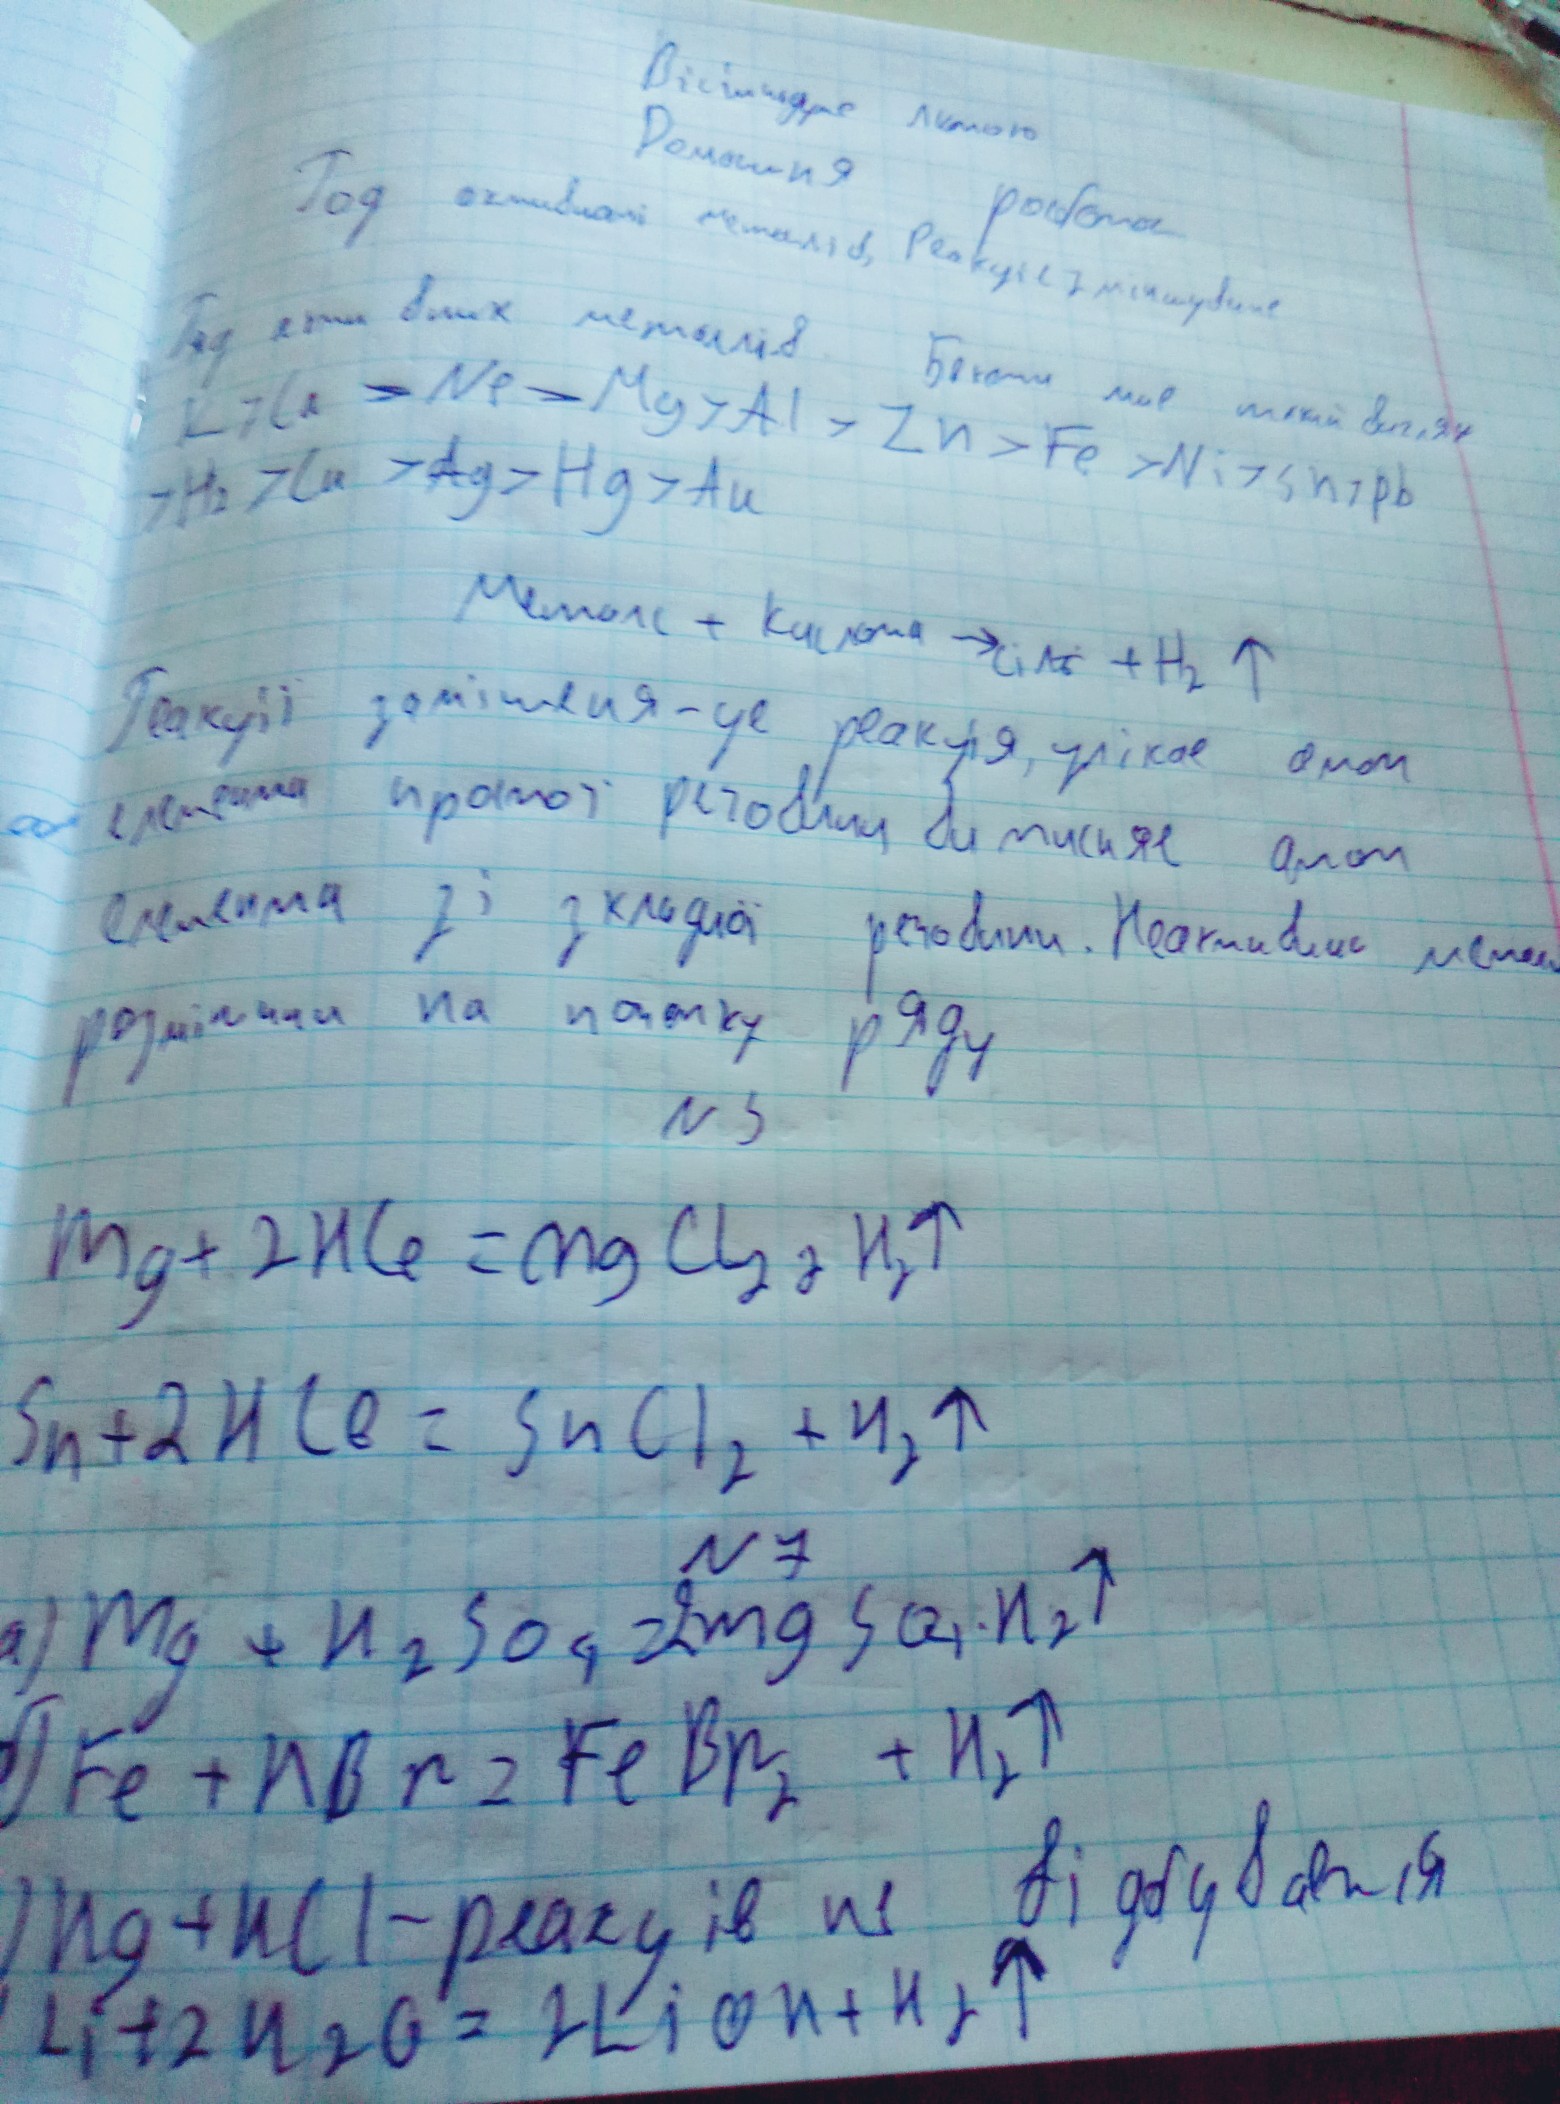 Вісімнадцяте лютого
Домашня робота
Ряд активності металів, Реакції заміщення
Ряд активних металів Бекетов має такий вигляд
K > Ca > Na > Mg > Al > Zn > Fe > Ni > Sn > Pb
> H₂ > Cu > Ag > Hg > Au
Метал + Кислота → сіль + H₂ ↑
Реакції заміщення - це реакція, у якое атом
елемента простої речовини витисняє атом
елемента зі складної речовини. Неактивние метали
розміщени на початку ряду
N 3
Mg + 2HCl = MgCl₂ + H₂↑
Sn + 2HCl = SnCl₂ + H₂↑
N 7
а) Mg + H₂SO₄ = 2MgSO₄ · H₂↑
б) Fe + HBr = FeBr₂ + H₂↑
) Hg + HCl - реакців не відбуваеться
Li + 2H₂O = 2LiOH + H₂↑